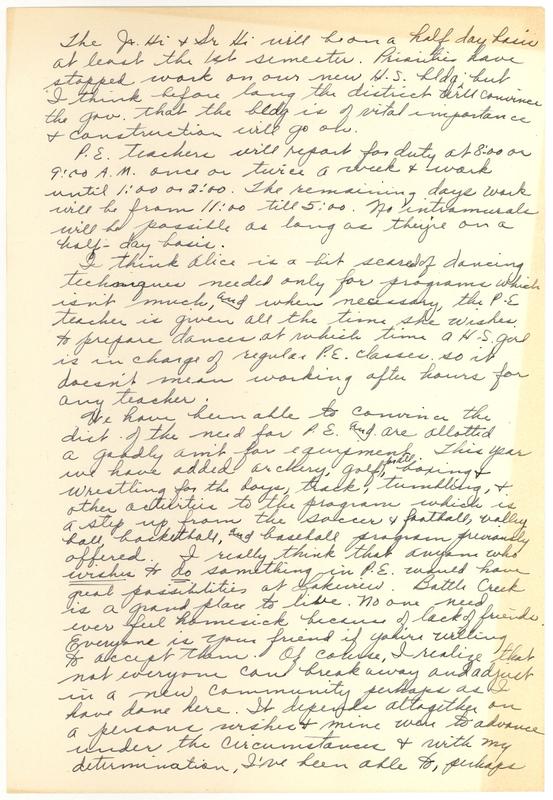 The Jr. Hi & Sr Hi will be on a half day basis
at least the 1st semester. Priorities have
stopped work on our new H.S. bldg. but
I think before long the district will convince
the gov. that the bldg is of vital importance
& construction will go on.
P.E. teachers will report for duty at 8:00 or
9:00 A.M. once or twice a week & work
until 1:00 or 2:00. The remaining days work
will be from 11:00 till 5:00. No intramurals
will be possible as long as they're on a
half-day basis.
I think Alice is a bit scared of dancing
techniques needed only for programs which
isn't much, and when necessary, the P.E
teacher is given all the time she wishes
to prepare dances at which time a H.S. girl
is in charge of regular P.E. classes. so it
doesn't mean working after hours for
any teacher.
We have been able to convince the
dist. of the need for P.E. and are allotted
a goodly am't for equipment. This year
we have added archery, golf, boxing &
wrestling for the boys, track, tumbling, &
other activities to the program which is
a step up from the soccer & football, volley
ball, basketball, and baseball program previously
offered. I really think that anyone who
wishes to do something in P.E. would have
great possibilities at Lakeview. Battle Creek
is a grand place to live. No one need
ever feel homesick because of lack of friends.
Everyone is your friend if you're willing
to accept them. Of course, I realize that
not everyone can break away and adjust
in a new community perhaps as I
have done here. It depends altogether on
a persons wishes & mine were to advance
under the circumstances & with my
determination, I've been able to, perhaps